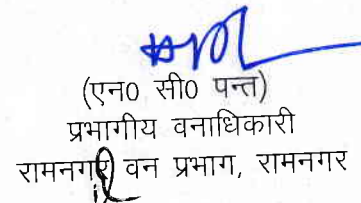 (एन0 सी0 पन्त)
प्रभागीय वनाधिकारी
रामनगर वन प्रभाग, रामनगर